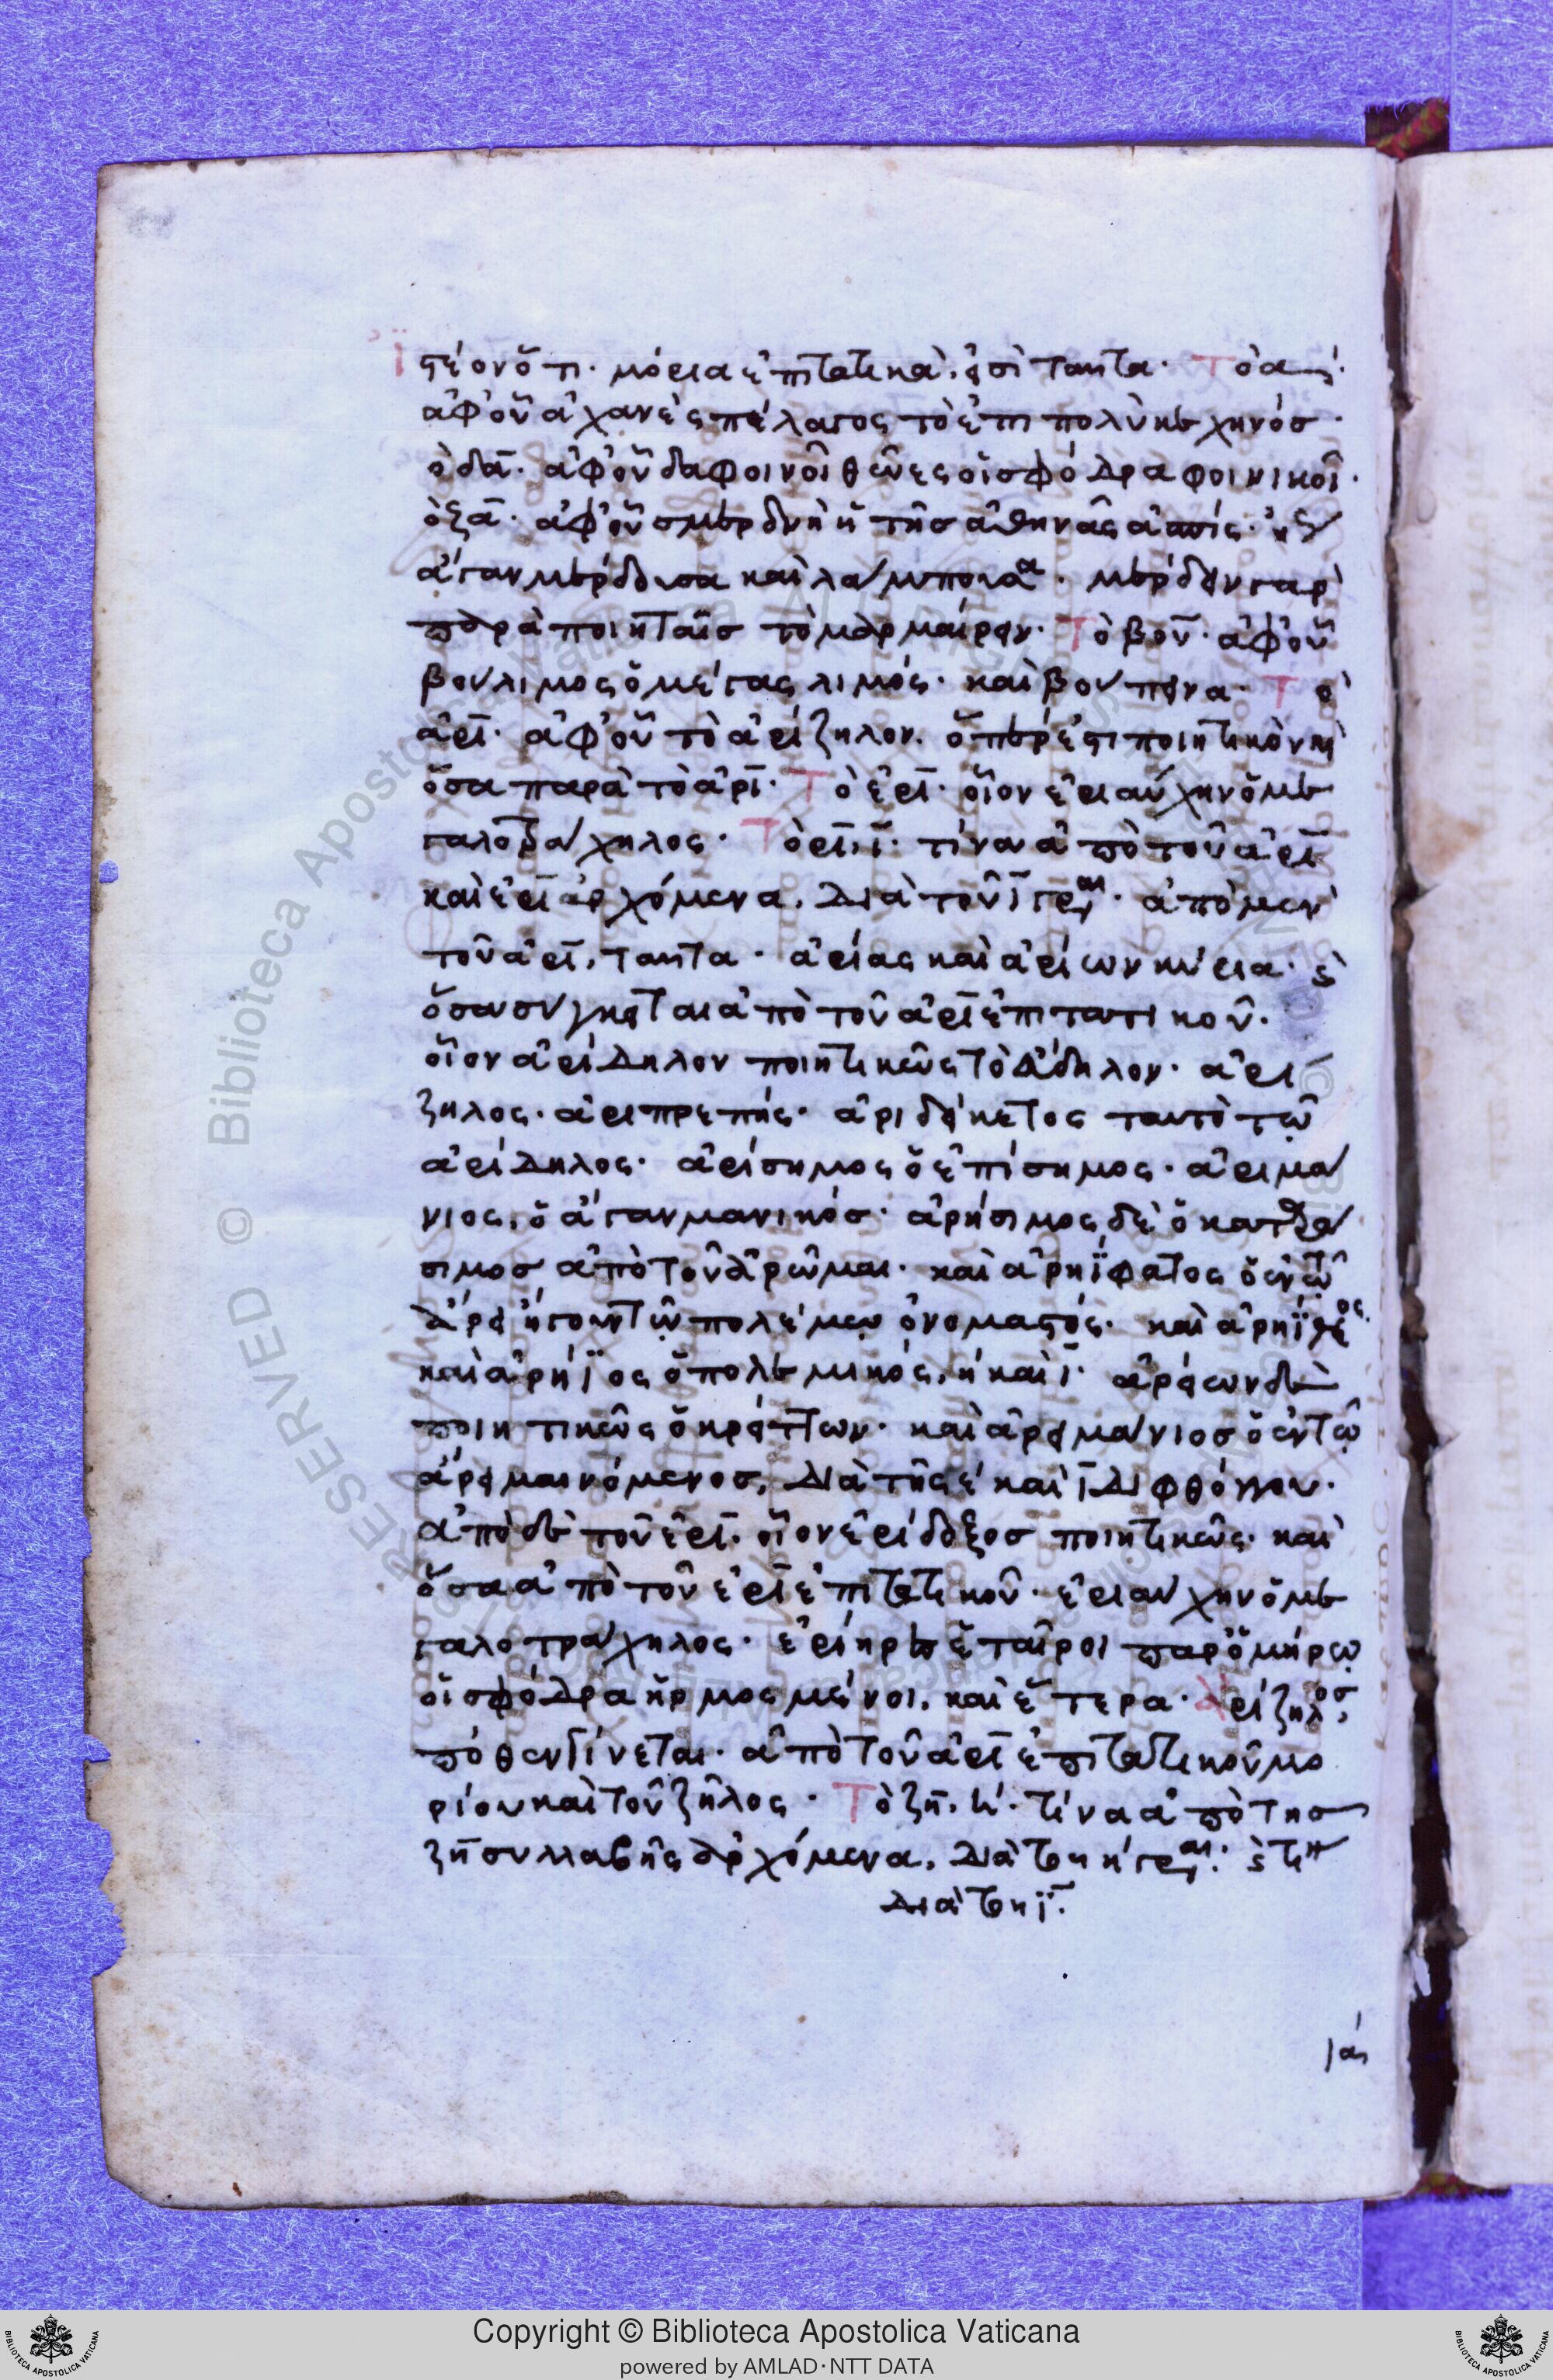 ἰστέον ὅτι· μόρια ἐπιτατικὰ, εἰσὶ ταῦτα· Τὸ α
ἀφ' οὗ ἀχανὲς πέλαγος τὸ ἐπι πολὺ κεχηνός·
ὁ δα· ἀφ' οὗ δαφοινοὶ θῶες οἱ σφόδρα φοινικοῖ·
ὁ ξα· ἀφ' οὗ σμερδνὴ ἡ τῆς ἀθηνᾶς ἀσπίς·
ἄγαν μερδδυσα καὶ λάμπουσα· μέρδειν γαρ
παρὰ ποιηταῖς τὸ μαρμαίρειν· Τὸ βου· ἀφ' οὗ
βούλιμος ὁ μέγας λιμός· καὶ βουπεινα· Τὸ
ἀρι· ἀφ' οὗ τὸ ἀρίζηλον. ὅπερ ἐστι ποιητικόν καὶ
ὅσα παρὰ τὸ ἀρι· Τὸ ἐρι· οἷον ἐριαύχην ὁ με
γαλοτράχηλος· Τὸ ρι, ι· τίνα ἀπὸ τοῦ ἀρι
καὶ ἐρι ἀρχόμενα, διὰ τοῦ ι γράφεται· ἀπὸ μεν
τοῦ ἀρι, ταῦτα· ἀρίας καὶ ἀρίων κύρια· καὶ
ὅσα σύγκειται ἀπὸ τοῦ ἀρι ἐπιτατικοῦ.
οἷον ἀρίδηλον ποιητικῶς τὸ ἄδηλον· ἀρι
ζηλος· ἀριπρεπής· ἀριδείκετος ταυτὸ τῷ
ἀρίδηλος· ἀρίσημος ὁ ἐπίσημος· ἀριμά
νιος, ὁ ἄγαν μανικός· ἀρήσιμος δὲ ὁ κατάρα
σιμος ἀπὸ τοῦ ἀρῶμαι· καὶ ἀρηΐφατος ὁ ἐν τῷ
ἄρει ἤγουν τῷ πολέμῳ ὀνομαστός· καὶ ἀρηΐθεος
καὶ ἀρήϊος ὁ πολεμικός, η καὶ ι· ἀρείων δὲ
ποιητικῶς ὁ κρείττων· καὶ ἀρειμάνιος ὁ ἐν τῷ
ἄρει μαινόμενος, διὰ τῆς ε καὶ ι διφθόγγου·
ἀπὸ δὲ τοῦ ἐρι· οἷον ἐρίδοξος ποιητικῶς· καὶ
ὅσα ἀπὸ τοῦ ἐρι ἐπιτατικοῦ· ἐριαύχην ὁ με
γαλοτράχηλος· ἐρίηρες ἑταῖροι παρ' ὁμήρῳ
οἱ σφόδρα ἡρμοσμένοι, καὶ ἕτερα· ἀρίζηλος,
πόθεν γίνεται· ἀπὸ τοῦ ἀρι ἐπιτατικοῦ μο
ρίου καὶ τοῦ ζῆλος· Τὸ ζη, η· τίνα ἀπὸ της
ζη συλλαβῆς ἀρχόμενα, διὰ του η γράφεται· καὶ τίνα
διὰ του ι·
ια
Copyright © Biblioteca Apostolica Vaticana
powered by AMLAD·NTT DATA